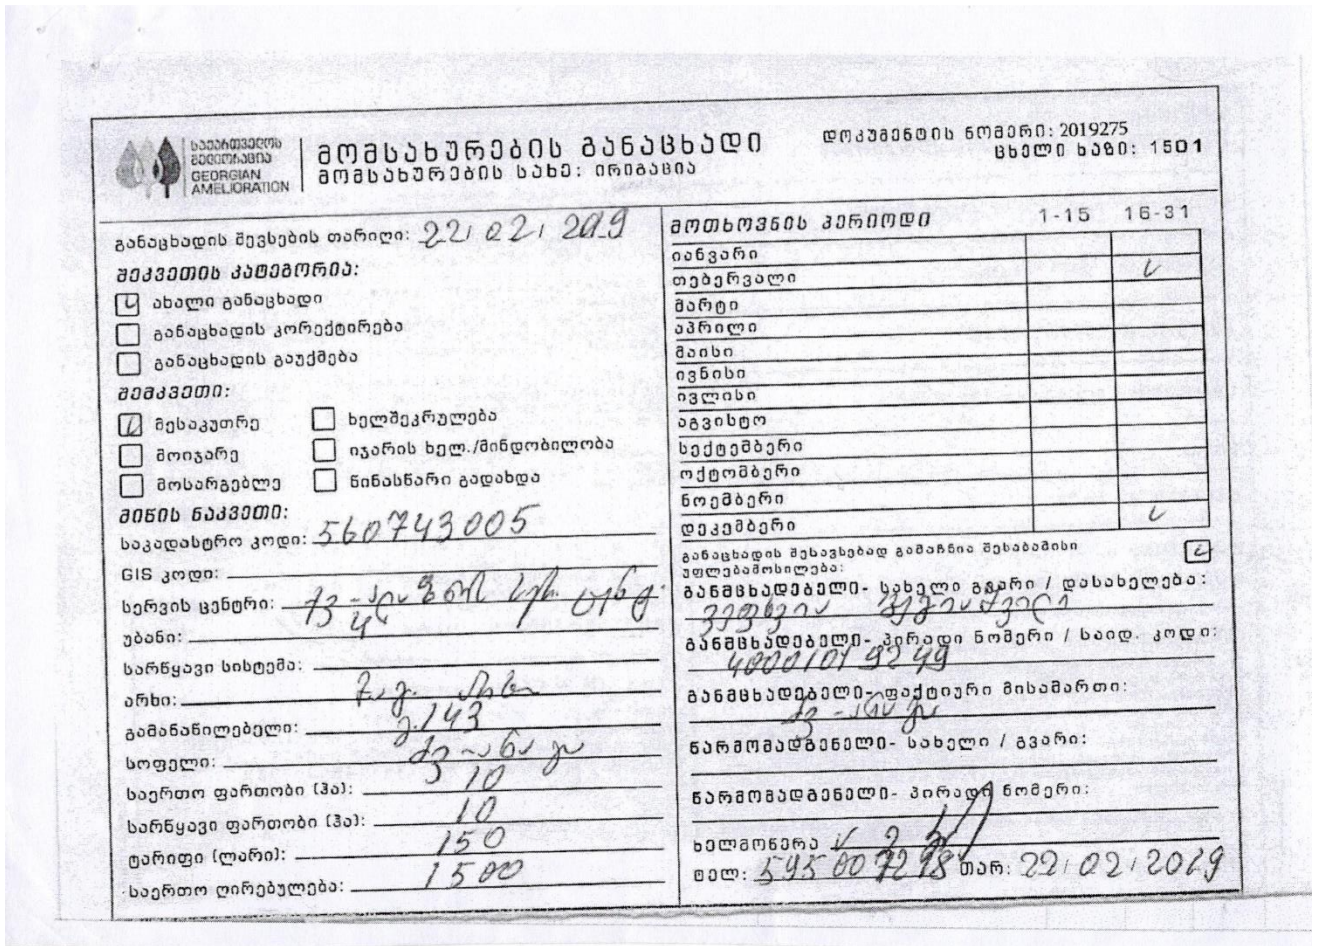 საქართველოს
მელიორაცია
GEORGIAN
AMELIORATION
მომსახურების განაცხადი
მომსახურების სახე: ირიგაცია
დოკუმენტის ნომერი: 2019275
ცხელი ხაზი: 1501
განაცხადის შევსების თარიღი: 22/02/2019
შეკვეთის კატეგორია:
ახალი განაცხადი
განაცხადის კორექტირება
განაცხადის გაუქმება
შემკვეთი:
მესაკუთრე
ხელშეკრულება
მოიჯარე
იჯარის ხელ./მინდობილობა
მოსარგებლე
წინასწარი გადახდა
მიწის ნაკვეთი:
საკადასტრო კოდი: 560743005
GIS კოდი:
სერვის ცენტრი:
უბანი: 4
სარწყავი სისტემა:
არხი: მაგ. არხი
გამანაწილებელი: გ.143
სოფელი:
საერთო ფართობი (ჰა): 10
სარწყავი ფართობი (ჰა): 10
ტარიფი (ლარი): 150
საერთო ღირებულება: 1500
მოთხოვნის პერიოდი 1-15 16-31
იანვარი
თებერვალი
მარტი
აპრილი
მაისი
ივნისი
ივლისი
აგვისტო
სექტემბერი
ოქტომბერი
ნოემბერი
დეკემბერი
განაცხადის შესავსებად გამაჩნია შესაბამისი
უფლებამოსილება:
განმცხადებელი- სახელი გვარი / დასახელება:
განმცხადებელი- პირადი ნომერი / საიდ. კოდი:
40001019249
განმცხადებელი- ფაქტიური მისამართი:
წარმომადგენელი- სახელი / გვარი:
წარმომადგენელი- პირადი ნომერი:
ხელმოწერა
ტელ: 595007298 თარ: 22/02/2019